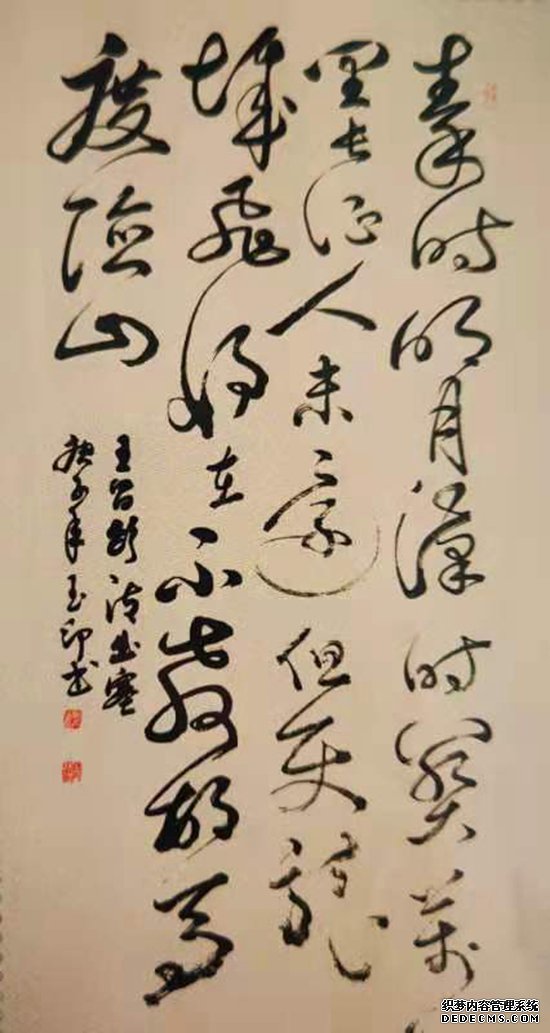 秦时明月漢时關萬
里长征人未還但使龍
城飛将在不教胡马
度陰山
王昌龄诗出塞
庚子年玉印书
织梦内容管理系统
DEDECMS.COM